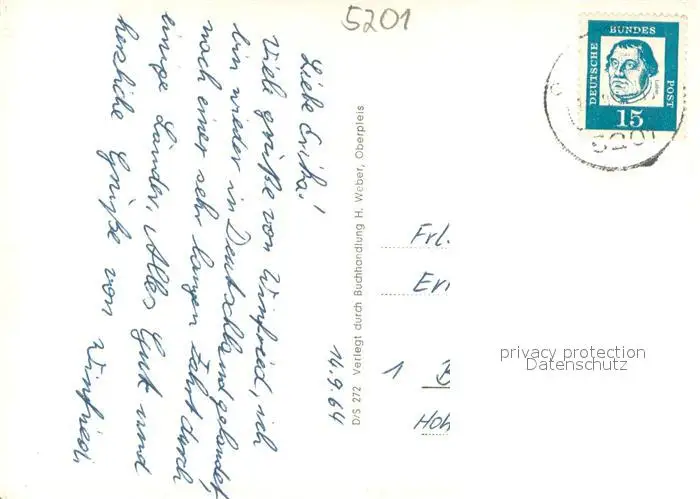 5201
14.9.64
Liebe Erika!
Viele Grüße von Winfried, ich
bin wieder in Deutschland gelandet,
nach einer sehr langen Fahrt durch
einige Länder. Alles Gut und
herzliche Grüße von Winfried.
D/S 272 Verlegt durch Buchhandlung H. Weber, Oberpleis
DEUTSCHE
BUNDES
POST
15
5201
Frl.
Eri
1 B
Hoh
privacy protection
Datenschutz